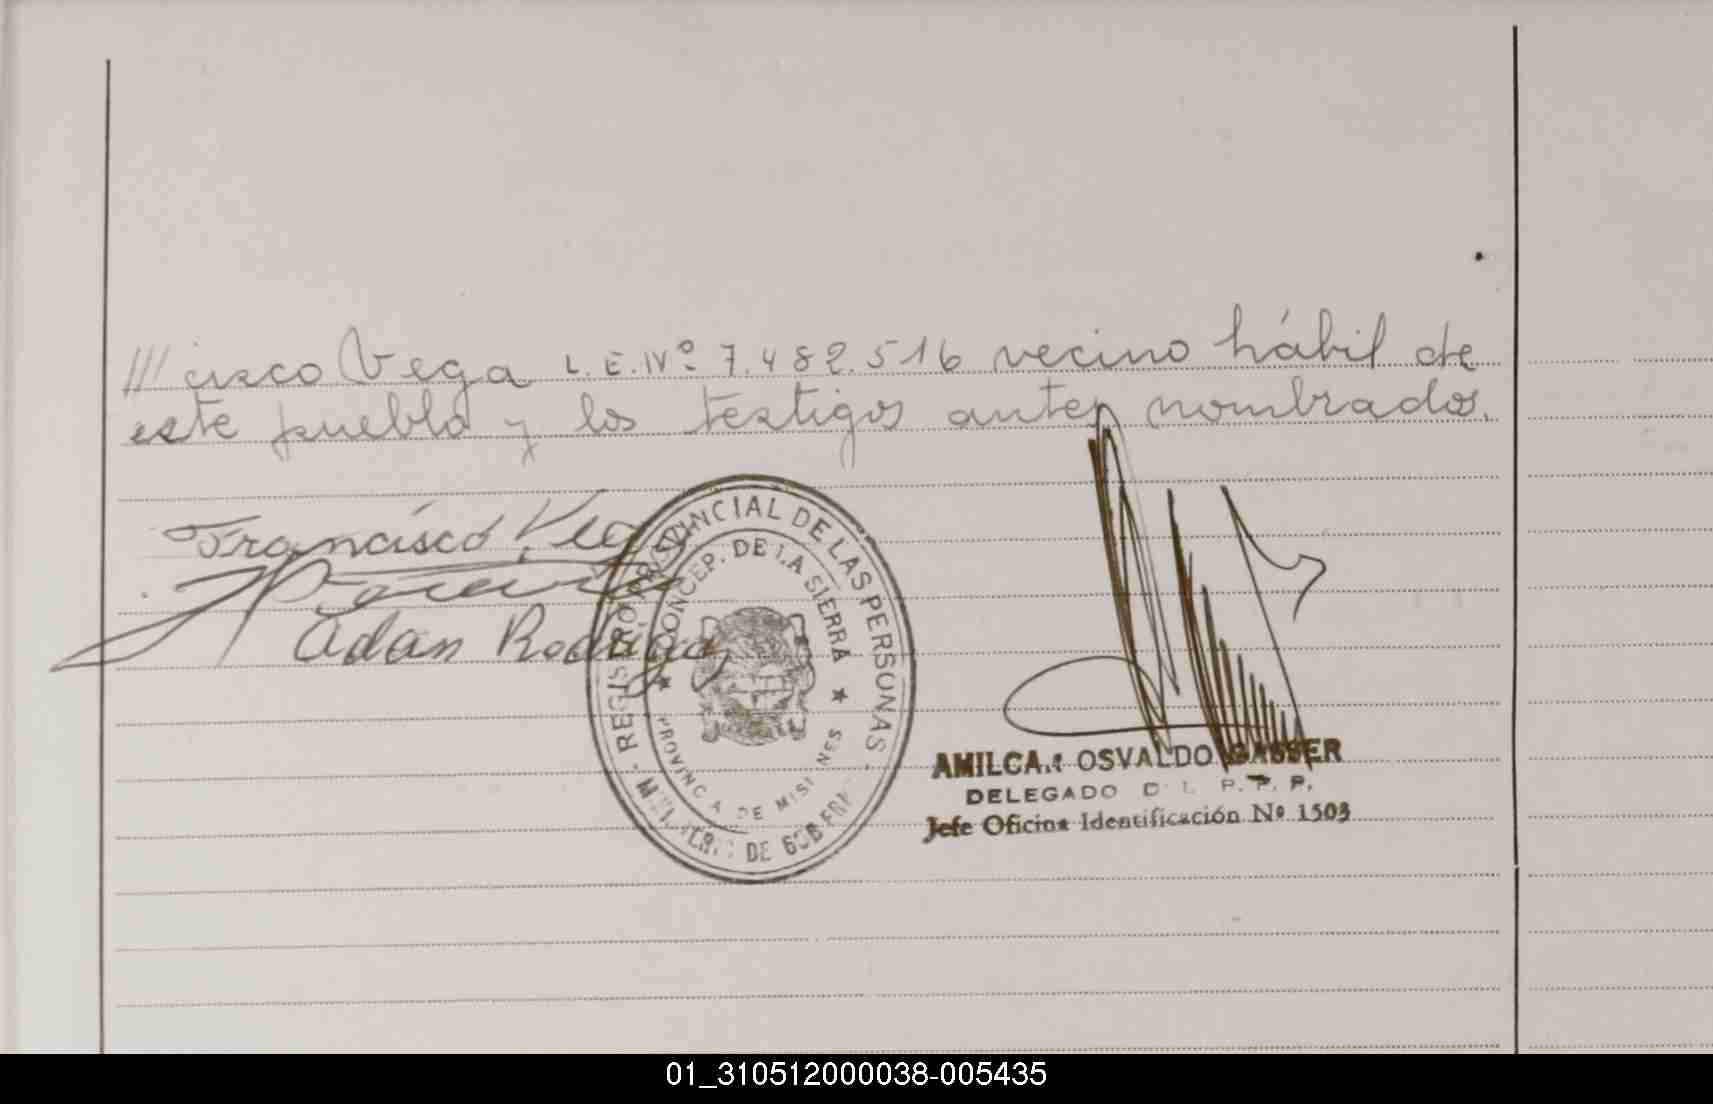 /// cisco Vega L.E.Nº 7.482.516 vecino hábil de
este pueblo y los testigos antes nombrados.
Francisco Vega
Adan Rodrigo
REGISTRO PROVINCIAL DE LAS PERSONAS
CONCEP. DE LA SIERRA
PROVINCIA DE MISIONES
MINISTERIO DE GOBIERNO
AMILCAR OSVALDO GASSER
DELEGADO D. L. R. P. P.
Jefe Oficina Identificación Nº 1503
01_310512000038-005435